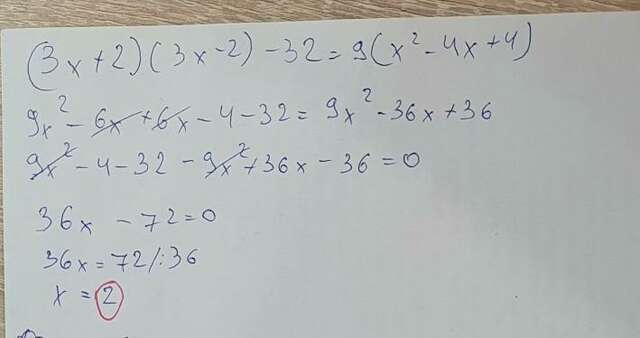 (3x+2)(3x-2)-32=9(x²-4x+4)
9x²-6x+6x-4-32=9x²-36x+36
9x²-4-32-9x²+36x-36=0
36x-72=0
36x=72/:36
x=2